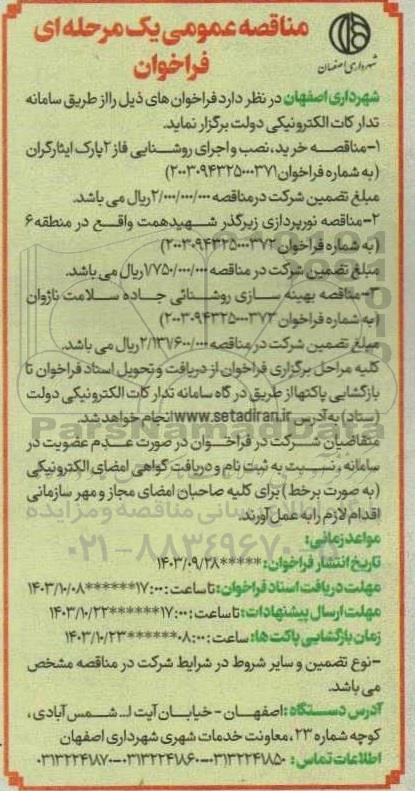 مناقصه عمومی یک مرحله ای
فراخوان
شهرداری اصفهان
شهرداری اصفهان در نظر دارد فراخوان های ذیل را از طریق سامانه
تدارکات الکترونیکی دولت برگزار نماید.
۱-مناقصه خرید، نصب و اجرای روشنایی فاز ۲ پارک ایثارگران
(به شماره فراخوان ۲۰۰۳۰۹۴۳۲۵۰۰۰۳۷۱)
مبلغ تضمین شرکت در مناقصه ۲/۰۰۰/۰۰۰/۰۰۰ ریال می باشد.
۲-مناقصه نورپردازی زیرگذر شهیدهمت واقع در منطقه ۶
(به شماره فراخوان ۲۰۰۳۰۹۴۳۲۵۰۰۰۳۷۲)
مبلغ تضمین شرکت در مناقصه ۱/۷۵۰/۰۰۰/۰۰۰ ریال می باشد.
۳-مناقصه بهینه سازی روشنائی جاده سلامت ناژوان
(به شماره فراخوان ۲۰۰۳۰۹۴۳۲۵۰۰۰۳۷۳)
مبلغ تضمین شرکت در مناقصه ۲/۱۳۷/۶۰۰/۰۰۰ ریال می باشد.
کلیه مراحل برگزاری فراخوان از دریافت و تحویل اسناد فراخوان تا
بازگشایی پاکتها از طریق درگاه سامانه تدارکات الکترونیکی دولت
(ستاد) به آدرس www.setadiran.ir انجام خواهد شد.
متقاضیان شرکت در فراخوان در صورت عدم عضویت در
سامانه، نسبت به ثبت نام و دریافت گواهی امضای الکترونیکی
(به صورت برخط) برای کلیه صاحبان امضای مجاز و مهر سازمانی
اقدام لازم را به عمل آورند.
مواعد زمانی:
تاریخ انتشار فراخوان: *****۱۴۰۳/۰۹/۲۸
مهلت دریافت اسناد فراخوان: تا ساعت: ۱۷:۰۰******۱۴۰۳/۱۰/۰۸
مهلت ارسال پیشنهادات: تا ساعت: ۱۷:۰۰******۱۴۰۳/۱۰/۲۲
زمان بازگشایی پاکت ها: ساعت: ۰۸:۰۰******۱۴۰۳/۱۰/۲۳
-نوع تضمین و سایر شروط در شرایط شرکت در مناقصه مشخص
می باشد.
آدرس دستگاه: اصفهان - خیابان آیت ا... شمس آبادی،
کوچه شماره ۲۳، معاونت خدمات شهری شهرداری اصفهان
اطلاعات تماس: ۰۳۱۳۲۲۴۱۸۵۰-۰۳۱۳۲۲۴۱۸۶۰-۰۳۱۳۲۲۴۱۸۷۰
ParsNamadData
۰۲۱-۸۸۳۴۹۶۷۰-۵